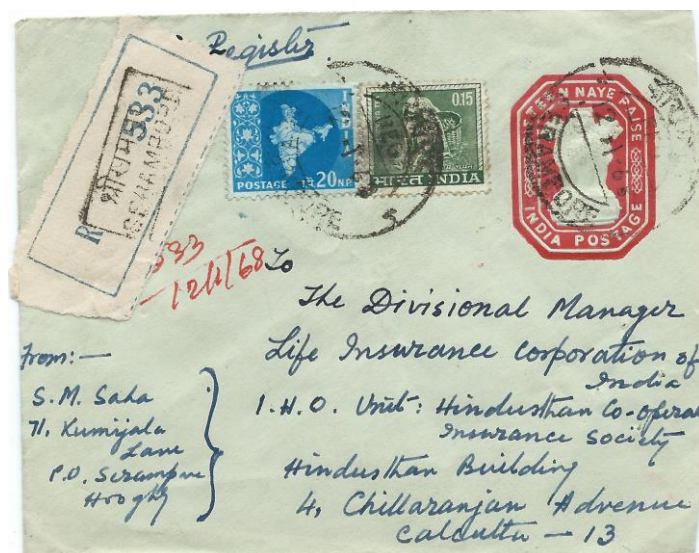 Register
R
श्रीराम
533
SERAMPORE
INDIA
POSTAGE 20 N.P.
0.15
भारत INDIA
TEEN NAYE PAISE
INDIA POSTAGE
533
12/1/68
To
The Divisional Manager
Life Insurance Corporation of
India
I.H.O. Unit: Hindusthan Co-opera
Insurance Society
Hindusthan Building
4, Chillaranjan Advenue
Calcutta — 13
From:—
S. M. Saha
71, Kumijala
Lane
P.O. Serampore
Hooghly